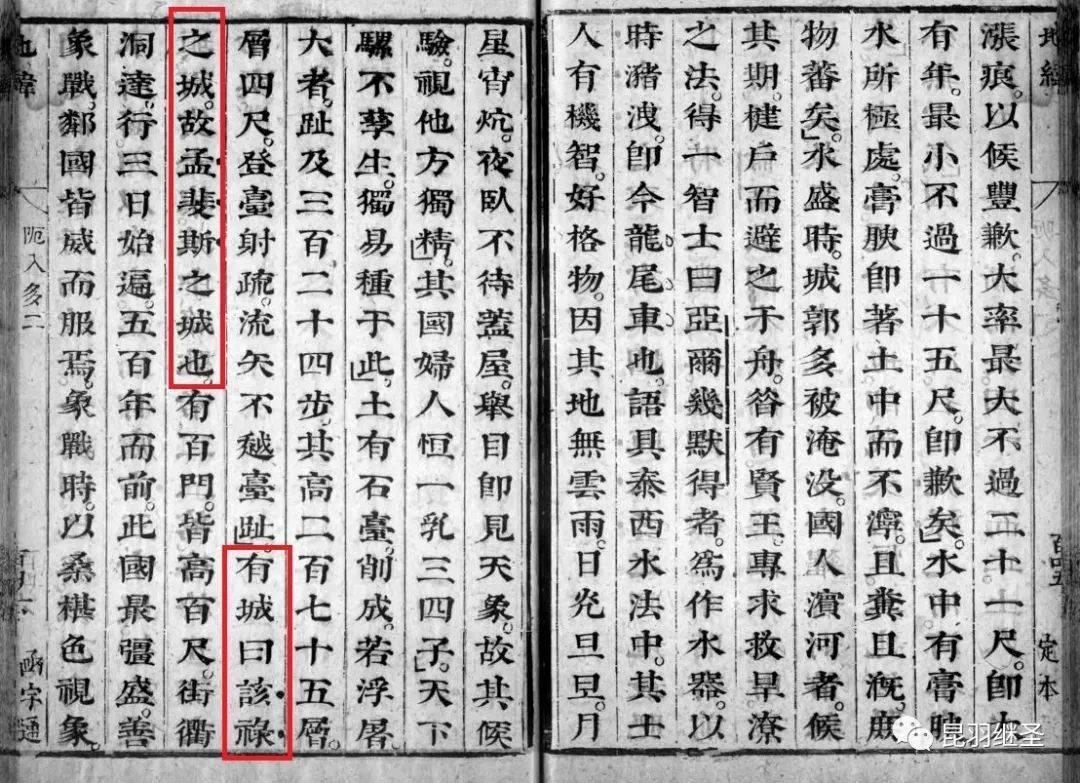 地緯
百四五
定本
漲痕。以候豐歉。大率最大不過二十一尺。卽大
有年。最小不過一十五尺。卽歉矣。水中有膏腴
水所極處。膏腴卽著土中而不濘。且糞且溉。庶
物蕃矣。水盛時。城郭多被淹没。國人濱河者。候
其期。楗戶而避之于舟。昝有賢王。專求救旱潦
之法。得一智士曰亞爾幾默得者。爲作水器。以
時瀦洩。卽今龍尾車也。語具泰西水法中。其士
人有機智。好格物。因其地無雲雨。日光旦旦。月
星宵炕。夜臥不待蓋屋。舉目卽見天象。故其候
驗。視他方獨精。其國婦人恒一乳三四子。天下
騾不孳生。獨易種于此。土有石臺。削成若浮屠
大者。趾及三百二十四步。其高二百七十五層。
層四尺。登臺射疏。流矢不越臺趾。有城曰該祿
之城。故孟斐斯之城也。有百門。皆高百尺。街衢
洞達。行三日始遍。五百年而前。此國最彊盛。善
象戰。鄰國皆威而服焉。象戰時。以桑椹色視象
地緯
阨入多二
函宇通
昆羽继圣